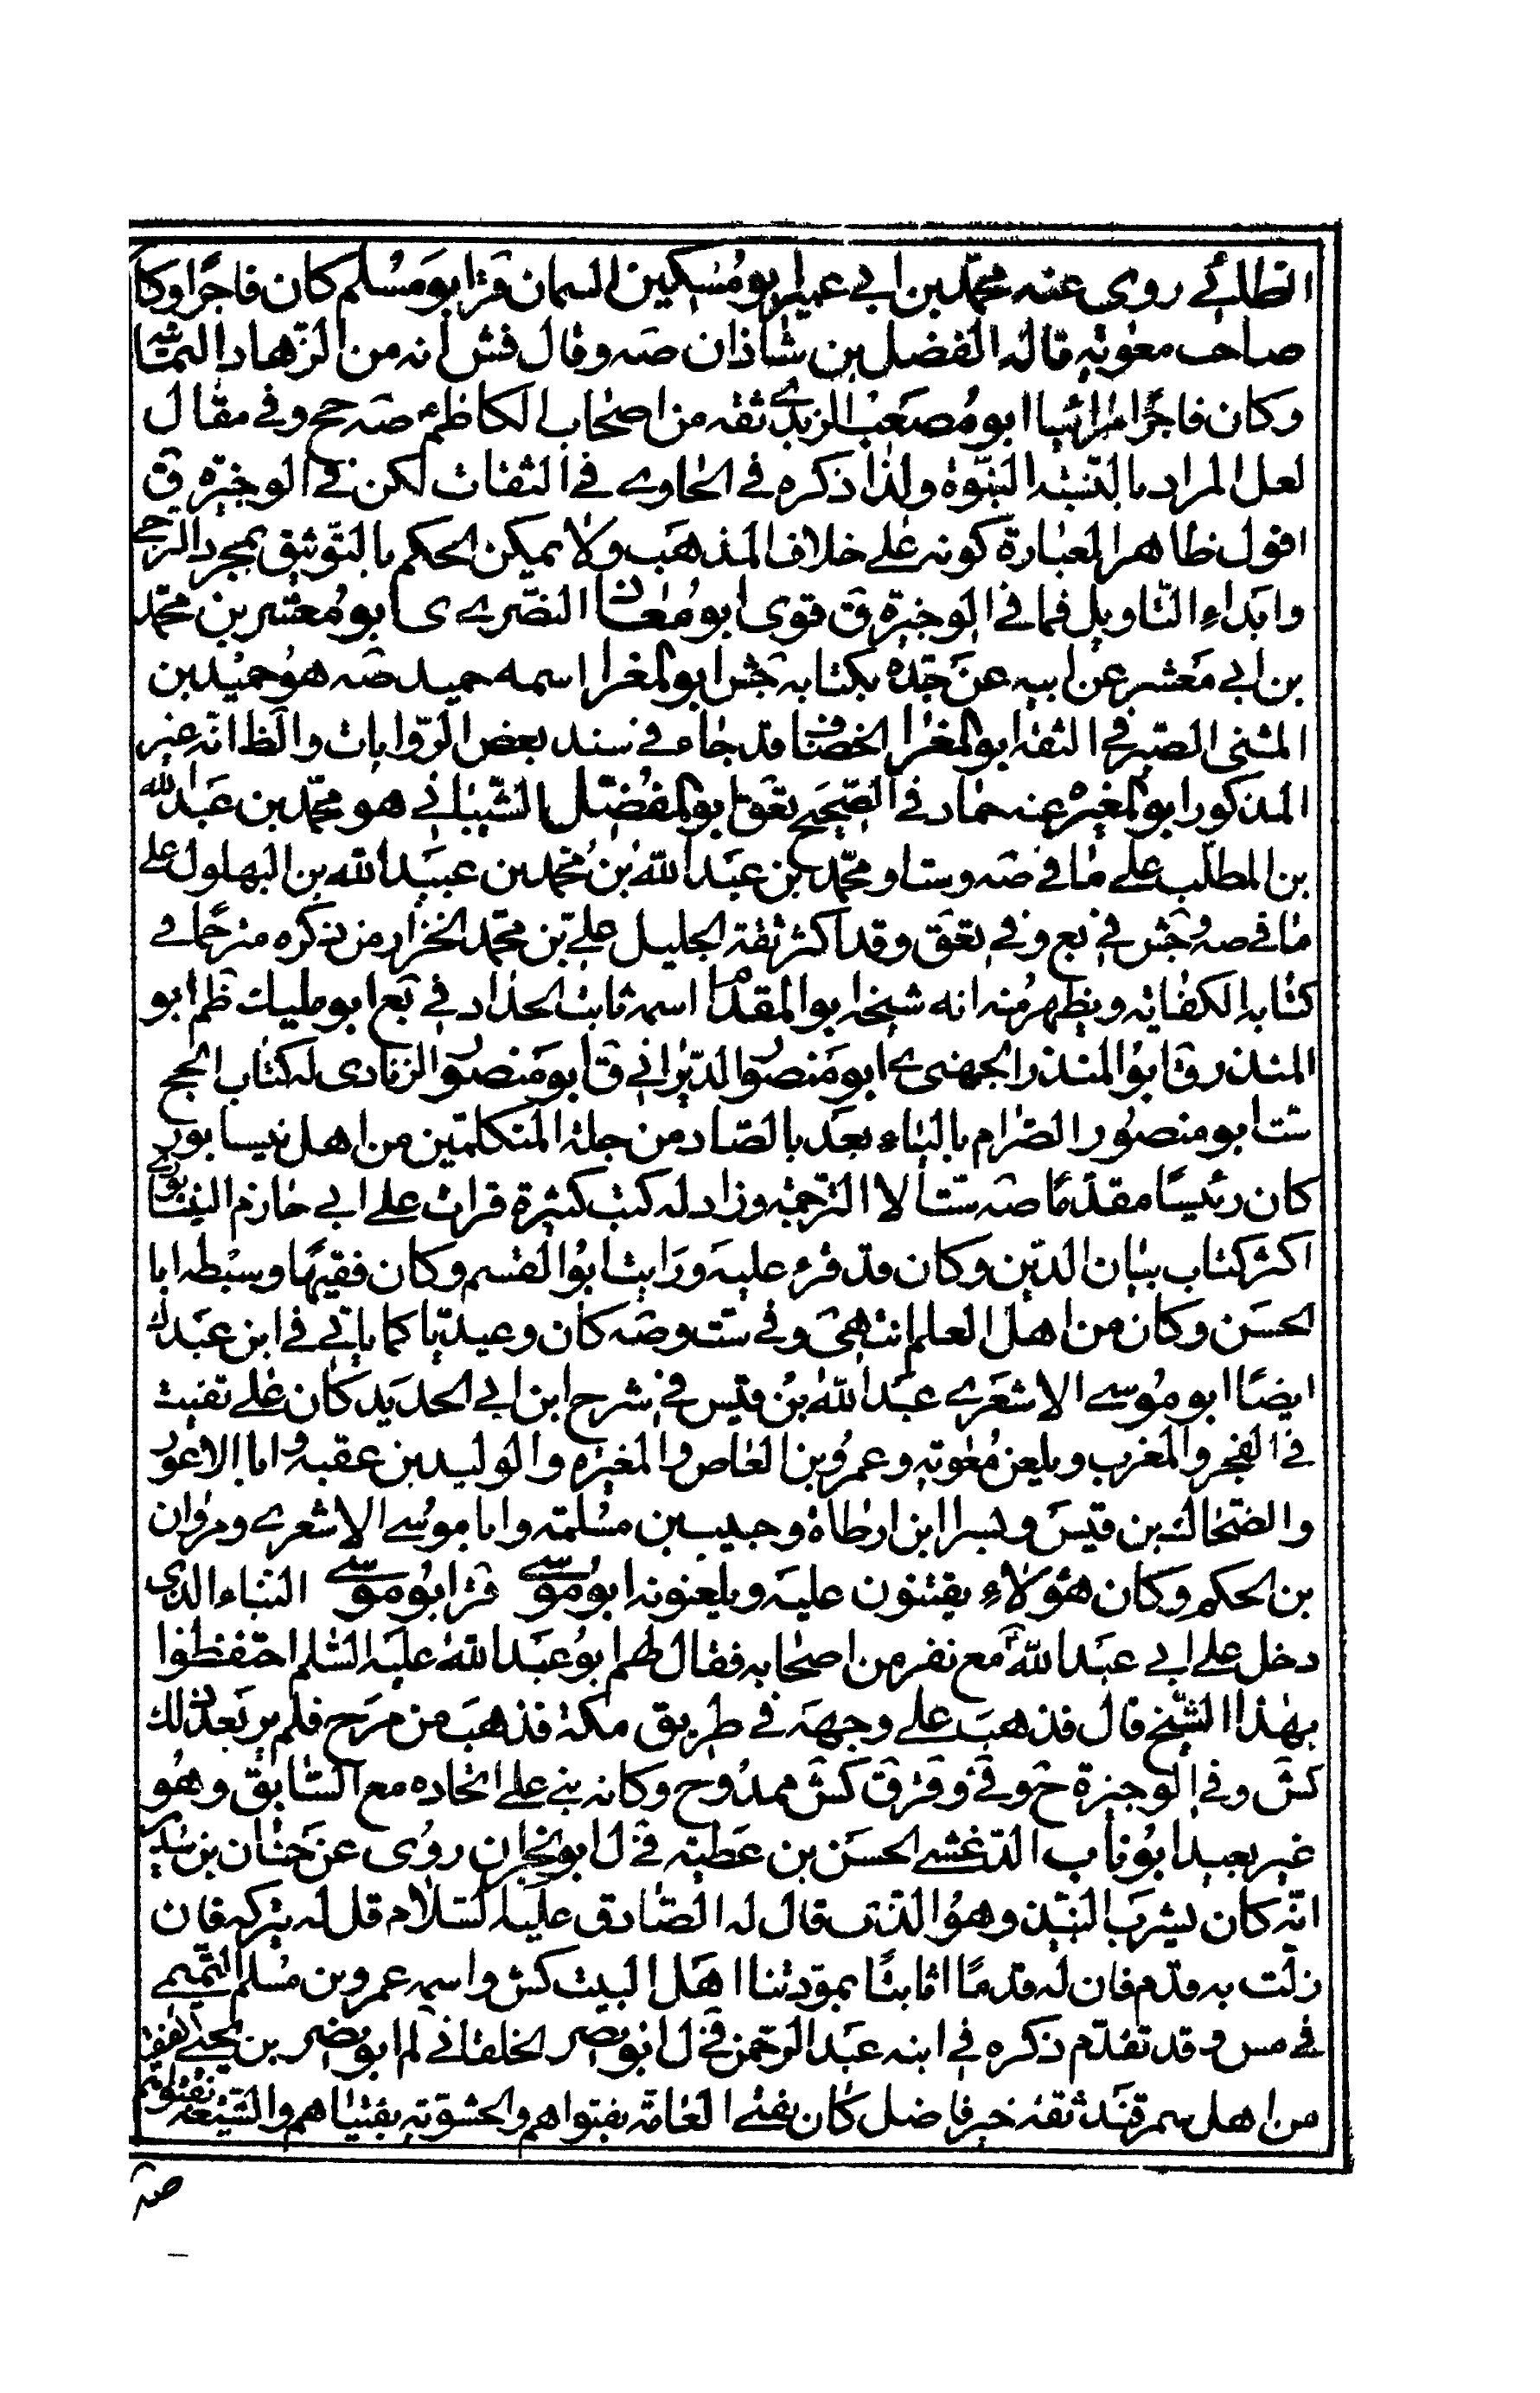 الطائي روى عنه محمد بن ابي عمير ابو مسكين السمان ق ابو مسلم كان فاجرا وكا
صاحب معوية قاله الفضل بن شاذان صه وقال فش انه من الزهاد الثمانية
وكان فاجرا مرائيا ابو مصعب الزيدي ثقه من اصحاب الكاظم ع صه جخ وفي مقال
لعل المراد بالنسبة البنوة ولذا ذكره في الحاوي في الثقات لكن في الوجيزة ق
اقول ظاهر العبارة كونه على خلاف المذهب ولا يمكن الحكم بالتوثيق بمجرد الترجي
وابداء التاويل فما في الوجيزة ق قوي ابو معان النضري ى ابو معشر بن محمد
بن ابي معشر عن ابيه عن جده بكتابه جش ابو المغرا اسمه حميد صه هو حميد بن
المثنى الصيرفي الثقة ابو المغرا الخصاف قد جاء في سند بعض الروايات والظ انه غير
المذكور ابو المغيرة عنه حماد في الصحيح تعق ابو المفضل الشيباني هو محمد بن عبد الله
بن المطلب على ما في صه وست او محمد بن عبد الله بن محمد بن عبيد الله بن البهلول على
ما في صه وجش في بع وفي تعق وقد اكثر ثقة الجليل علي بن محمد الخزار من ذكره مترحما في
كتابه الكفاية ويظهر منه انه شيخه ابو المقدام اسمه ثابت الحداد في تع ابو مليك ظم ابو
المنذر ق ابو المنذر الجهني ى ابو منصور الديراني ق ابو منصور الزبادى له كتاب الحج
ست ابو منصور الصرام بالياء بعد بالصاد من جلة المتكلمين من اهل نيسابور
كان رئيسا مقدما صه ست الا الترجمة وزاد له كتب كثيرة قرات على ابي حازم النيشابوري
اكثر كتاب بيان الدين وكان قد قرء عليه ورايت ابو القسم وكان فقيها وسبطه ابا
الحسن وكان من اهل العلم انتهى وفي ست وصه كان وعيديا كما ياتي في ابن عبدك
ايضا ابو موسى الاشعري عبد الله بن قيس في شرح ابن ابي الحديد كان علي تقنت
في الفجر والمغرب ويلعن معوية وعمرو بن العاص والمغيرة والوليد بن عقبة وابا الاعور
والضحاك بن قيس وبسر ابن ارطاة وحبيب بن مسلمة وابا موسى الاشعري ومروان
بن الحكم وكان هؤلاء يقنتون عليه ويلعنونه ابو موسى ق ابو موسى البناء الذي
دخل على ابي عبد الله ع مع نفر من اصحابه فقال لهم ابو عبد الله عليه السلم احتفظوا
بهذا الشيخ قال فذهب على وجهه في طريق مكة فذهب من مرح فلم ير بعد ذلك
كش وفي الوجيزة ح وفي ق كش ممدوح وكانه بنى على اتحاده مع السابق وهو
غير بعيد ابو ناب الدغشي الحسن بن عطية في ل ابو نجران روى عن حنان بن سدير
انه كان يشرب النبيذ وهو الذي قال له الصادق عليه السلام قل له يتركه فان
زلت به قدم فان له قدما ثابتا بمودتنا اهل البيت كش واسمه عمرو بن مسلم التميمي
في مس وقد تقدم ذكره في ابنه عبد الرحمن في ل ابو نصر الخلقاني لم ابو نصر بن يحيى الفقيه
من اهل سمرقند ثقة خير فاضل كان يفتي العامة بفتواهم والحشوية بفتياهم والشيعة بفتواهم
صه